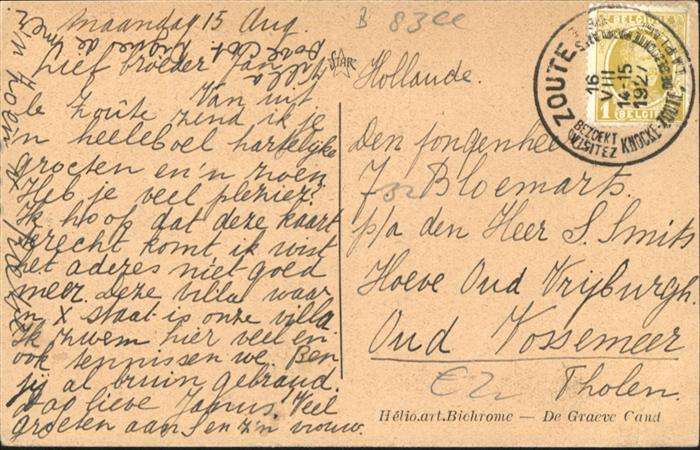 maandag 15 Aug.
Lief broeder Jan
Van uit
le Zoûte zend ik je
'n heeleboel hartelijke
groeten en 'n zoen
Heb je veel plezier?
Ik hoop dat deze kaart
terecht komt ik wist
het adres niet goed
meer. Deze villa waar
'n x staat is onze villa
Ik zwem hier veel en
ook tennissen we. Ben
jij al bruin gebrand.
Dag lieve Janus. Veel
groeten aan S en z'n vrouw.
'n zoen
B 83ee
STAR
Hollande.
Den jongenheer
J. Bloemarts.
p/a den Heer S. Smits
Hoeve Oud Vrijburgh
Oud Vossemeer
Tholen.
Hélio.art.Bichrome — De Graeve Gand
ZOUTE
16
VIII
14-15
1927
BEZOEKT
VISITEZ KNOCKE-ZOUTE
BELGIQUE
1 1
BELGIË